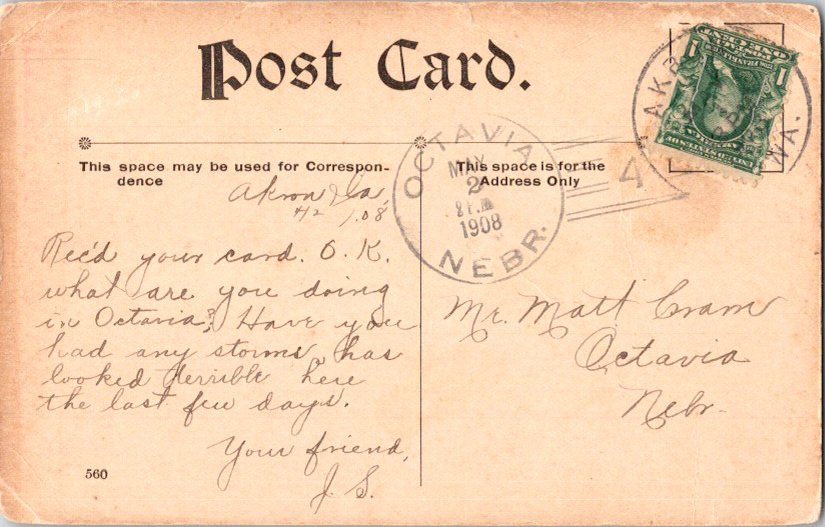 Post Card.
This space may be used for Correspon-
dence
This space is for the
Address Only
OCTAVIA
MAY
2
1908
NEBR.
4
AKR
NA.
Akron Ia,
1.08
Rec'd your card. O. K.
what are you doing
in Octavia? Have you
had any storms, has
looked terrible here
the last few days.
Your friend,
J. S.
Mr. Matt Cram
Octavia
Nebr.
560
1
ONE CENT
POSTAGE
1